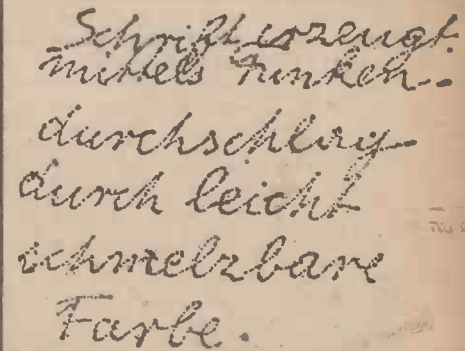 Schrift erzeugt
mittels Funken-
durchschlag
durch leicht
schmelzbare
Farbe.